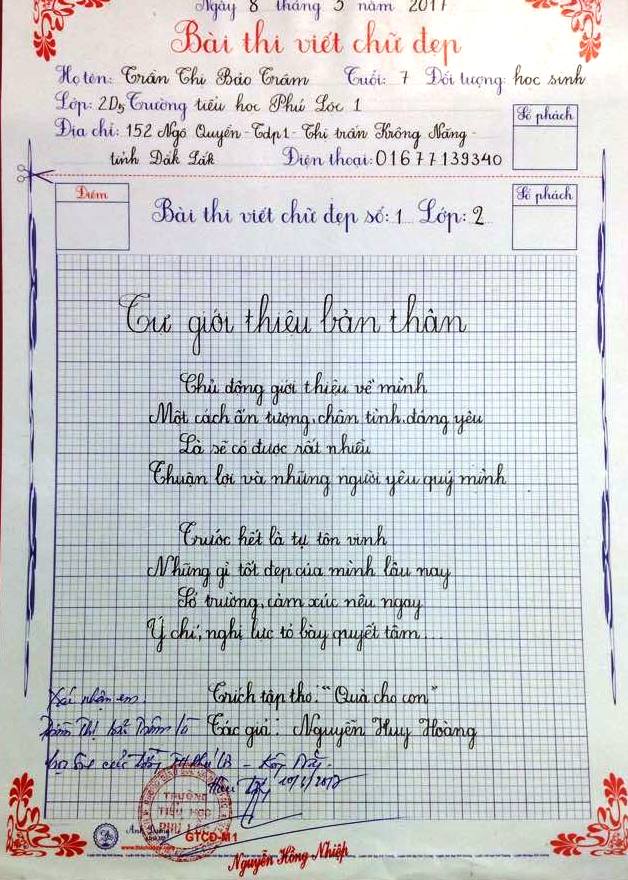 Ngày 8 tháng 3 năm 2017
Bài thi viết chữ đẹp
Họ tên: Trần Thị Bảo Trâm Tuổi: 7 Đối tượng: học sinh
Lớp: 2D5 Trường tiểu học Phú Lộc 1
Địa chỉ: 152 Ngô Quyền - Tdp1 - Thị trấn Krông Năng -
tỉnh Đắk Lắk Điện thoại: 01677139340
Số phách
Điểm
Bài thi viết chữ đẹp số: 1 Lớp: 2
Số phách
Tự giới thiệu bản thân
Chủ động giới thiệu về mình
Một cách ấn tượng, chân tình, đáng yêu
Là sẽ có được rất nhiều
Thuận lợi và những người yêu quý mình
Trước hết là tự tôn vinh
Những gì tốt đẹp của mình lâu nay
Sở trường, cảm xúc nêu ngay
Ý chí, nghị lực tỏ bày quyết tâm...
Trích tập thơ: "Quà cho con"
Tác giả: Nguyễn Huy Hoàng
Xác nhận em:
Trần Thị Bảo Trâm là
TRƯỜNG
TIỂU HỌC
Ánh Dương
GTCĐ-M1
Nguyễn Hồng Nhiệp